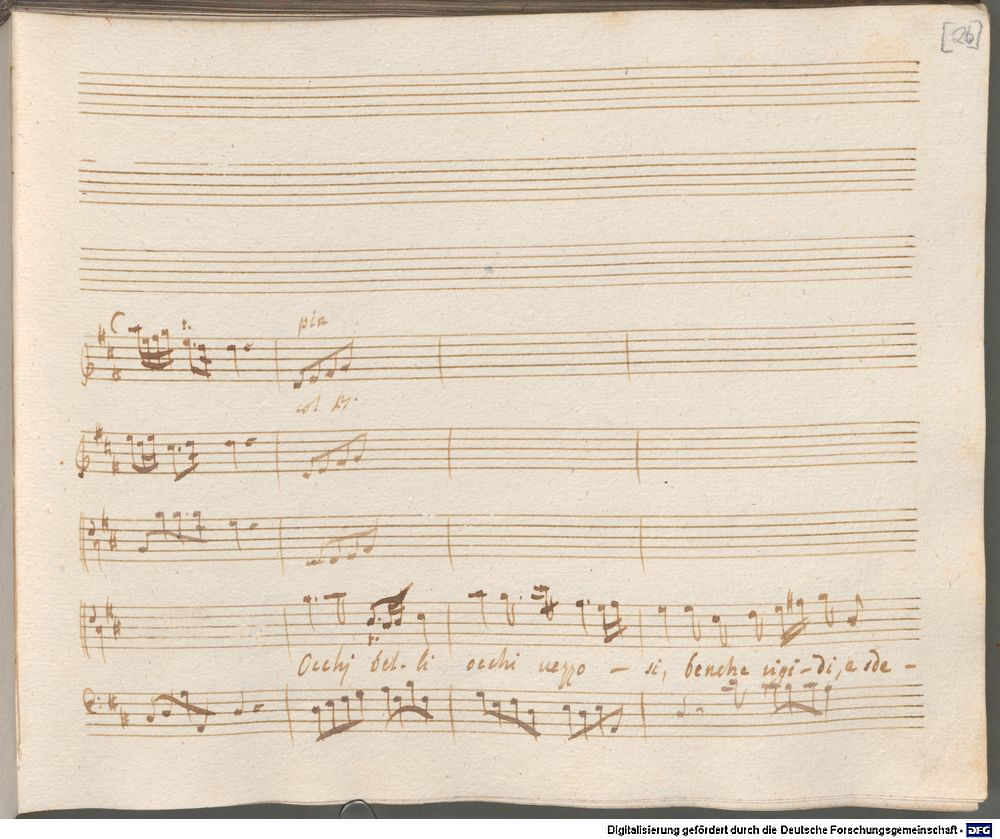 [26]
pia
col B.
Occhj bel-li occhi vezzo - si, benche rigi-di, e sde -
Digitalisierung gefördert durch die Deutsche Forschungsgemeinschaft - DFG